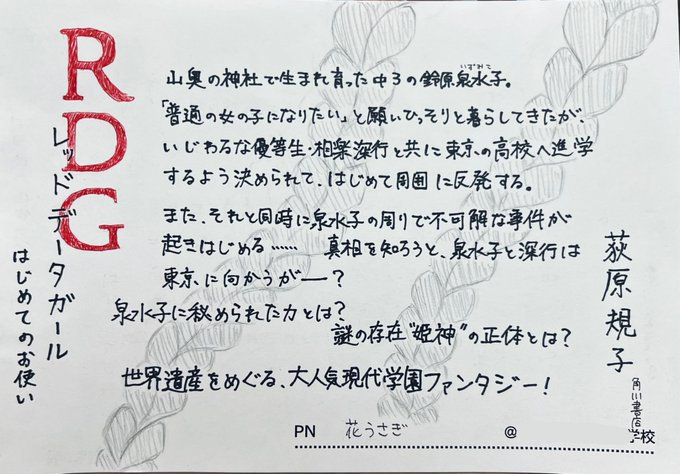 RDG
レッドデータガール
はじめてのお使い
山奥の神社で生まれ育った中3の鈴原泉水子。
いずみこ
「普通の女の子になりたい」と願いひっそりと暮らしてきたが、
いじわるな優等生・相楽深行と共に東京の高校へ進学
するよう決められて、はじめて周囲に反発する。
また、それと同時に泉水子の周りで不可解な事件が
起きはじめる…… 真相を知ろうと、泉水子と深行は
東京に向かうが―?
泉水子に秘められた力とは?
謎の存在"姫神"の正体とは?
世界遺産をめぐる、大人気現代学園ファンタジー!
荻原規子
角川書店
PN 花うさぎ @ 学校